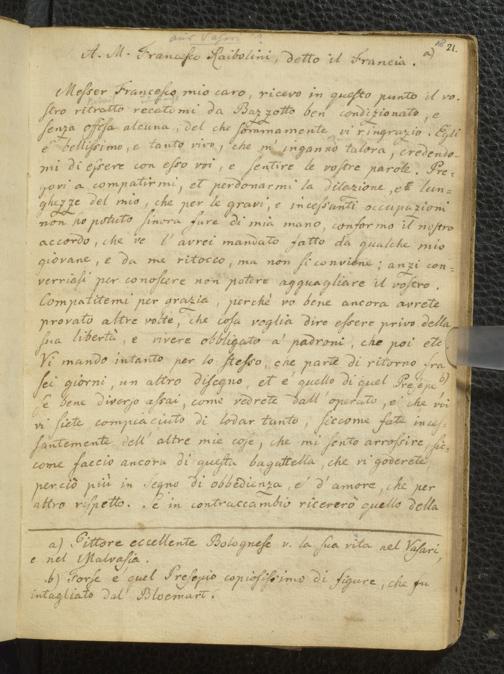 21.
aus Vasari
A. M. Francesco Raibolini, detto il Francia. a)
Messer Francesco mio caro, ricevo in questo punto il vo-
stro ritratto recatomi da Bazzotto ben condizionato, e
senza offesa alcuna, del che sommamente vi ringrazio. Egli
è bellissimo, e tanto vivo, che m'inganno talora, credendo-
mi di essere con esso voi, e sentire le vostre parole. Pre-
govi a compatirmi, et perdonarmi la dilazione, et lun-
ghezze del mio, che per le gravi, e incessanti occupazioni
non ho potuto sinora fare di mia mano, conforme il nostro
accordo, che ve l'avrei mandato fatto da qualche mio
giovane, e da me ritocco, ma non si conviene; anzi con-
verriasi per conoscere non potere agguagliare il vostro.
Compatitemi per grazia, perchè voi bene ancora avrete
provato altre volte, che cosa voglia dire essere privo della
sua libertà, e vivere obbligato a' padroni, che poi etc
Vi mando intanto per lo stesso, che parte di ritorno fra
sei giorni, un altro disegno, et è quello di quel Presepe b)
se bene diverso assai, come vedrete dall'operato, e che voi
vi siete compiaciuto di lodar tanto, siccome fate inces-
santemente dell'altre mie cose, che mi sento arrossire, sic-
come faccio ancora di questa bagattella, che vi goderete
perciò più in segno di obbedienza, e d'amore, che per
altro rispetto. Se in contraccambio riceverò quello della
a) Pittore eccellente Bolognese v. la sua vita nel Vasari,
e nel Malvasia.
b) Forse è quel Presepio copiosissimo di figure, che fu
intagliato dal Bloemart.